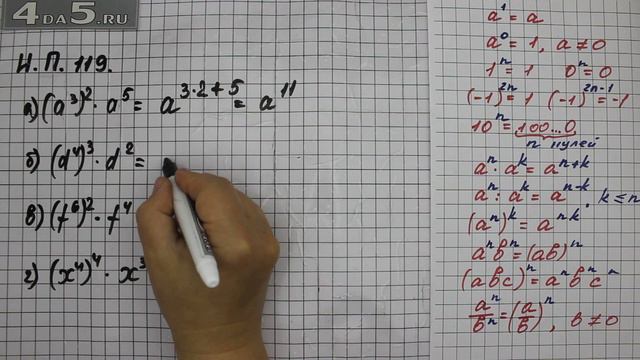 4DA5.RU
Н. П. 119.
а) (a³)²· a⁵ = a³·²⁺⁵ = a¹¹
б) (d⁴)³ · d² =
в) (f⁶)² · f⁴
г) (x⁴)⁴ · x³
a¹ = a
a⁰ = 1, a ≠ 0
1ⁿ = 1 0ⁿ = 0
(-1)²ⁿ = 1 (-1)²ⁿ⁻¹ = -1
10ⁿ = 100...0
n нулей
aⁿ · aᵏ = aⁿ⁺ᵏ
aⁿ : aᵏ = aⁿ⁻ᵏ, k ≤ n
(aⁿ)ᵏ = aⁿᵏ
aⁿbⁿ = (ab)ⁿ
(abc)ⁿ = aⁿbⁿcⁿ
aⁿ/bⁿ = (a/b)ⁿ, b ≠ 0